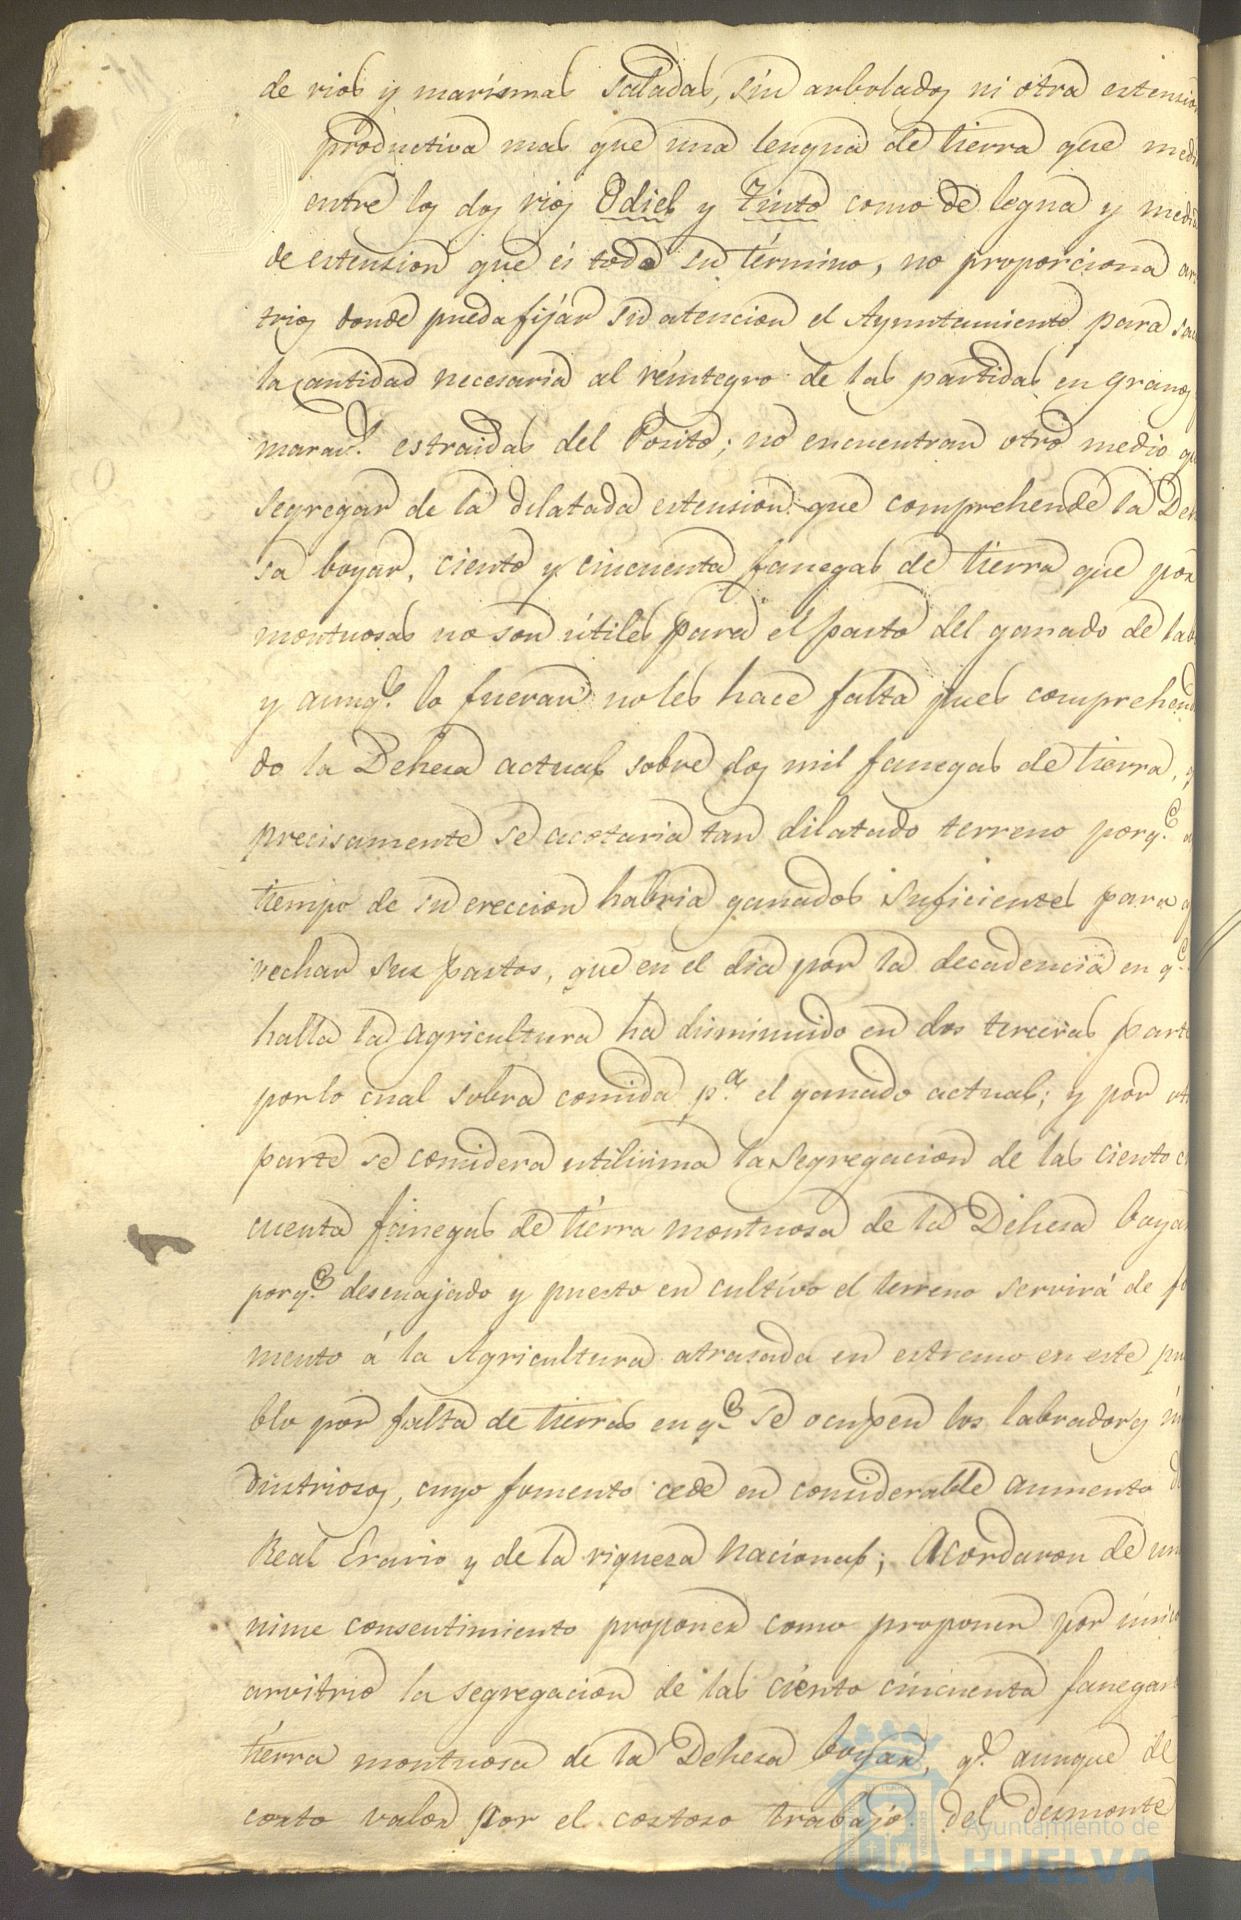 de rios y marismas saladas, sin arbolados ni otra estension
productiva mas que una lengua de tierra que medi
entre los dos rios Odiel y Tinto como de legua y media
de estension que és toda su término, no proporciona ar
trios donde pueda fijár su atencion el Ayuntamiento para sa
la cantidad necesaria al réintegro de las partidas en granos
marav.s estraidas del Posito; no encuentran otro medio qu
segregar de la dilatada estension que comprehende la Dehe
sa boyar, ciento y cincuenta fanegas de tierra que por
montuosas no son útiles para el pasto del ganado de lab
y aunq.e lo fueran no les hace falta pues comprehen
do la Dehesa actual sobre dos mil fanegas de tierra, q
precisamente se acotaria tan dilatado terreno porq.e a
tiempo de su ereccion habria ganados suficientes para a
vechar sus pastos, que en el dia por la decadencia en q.e
halla la agricultura ha disminuido en dos terceras parte
por lo cual sobra comida p.a el ganado actual; y por ot
parte se considera utilisima la segregacion de las ciento ci
cuenta fanegas de tierra montuosa de la Dehesa boyar
porq.e descuajado y puesto en cultivo el terreno servirá de fo
mento á la Agricultura atrasada en estremo en este pue
blo por falta de tierras en q.e se ocupen los labradores in
dustriosos, cuyo fomento cede en considerable aumento d
Real Erario y de la riqueza nacional; Acordaron de una
nime consentimiento proponer como proponen por único
arvitrio la segregacion de las ciento cincuenta fanegas
tierra montuosa de la Dehesa boyar, q.e aunque de
corto valor por el costoso trabajo del desmonte
Ayuntamiento de
HUELVA